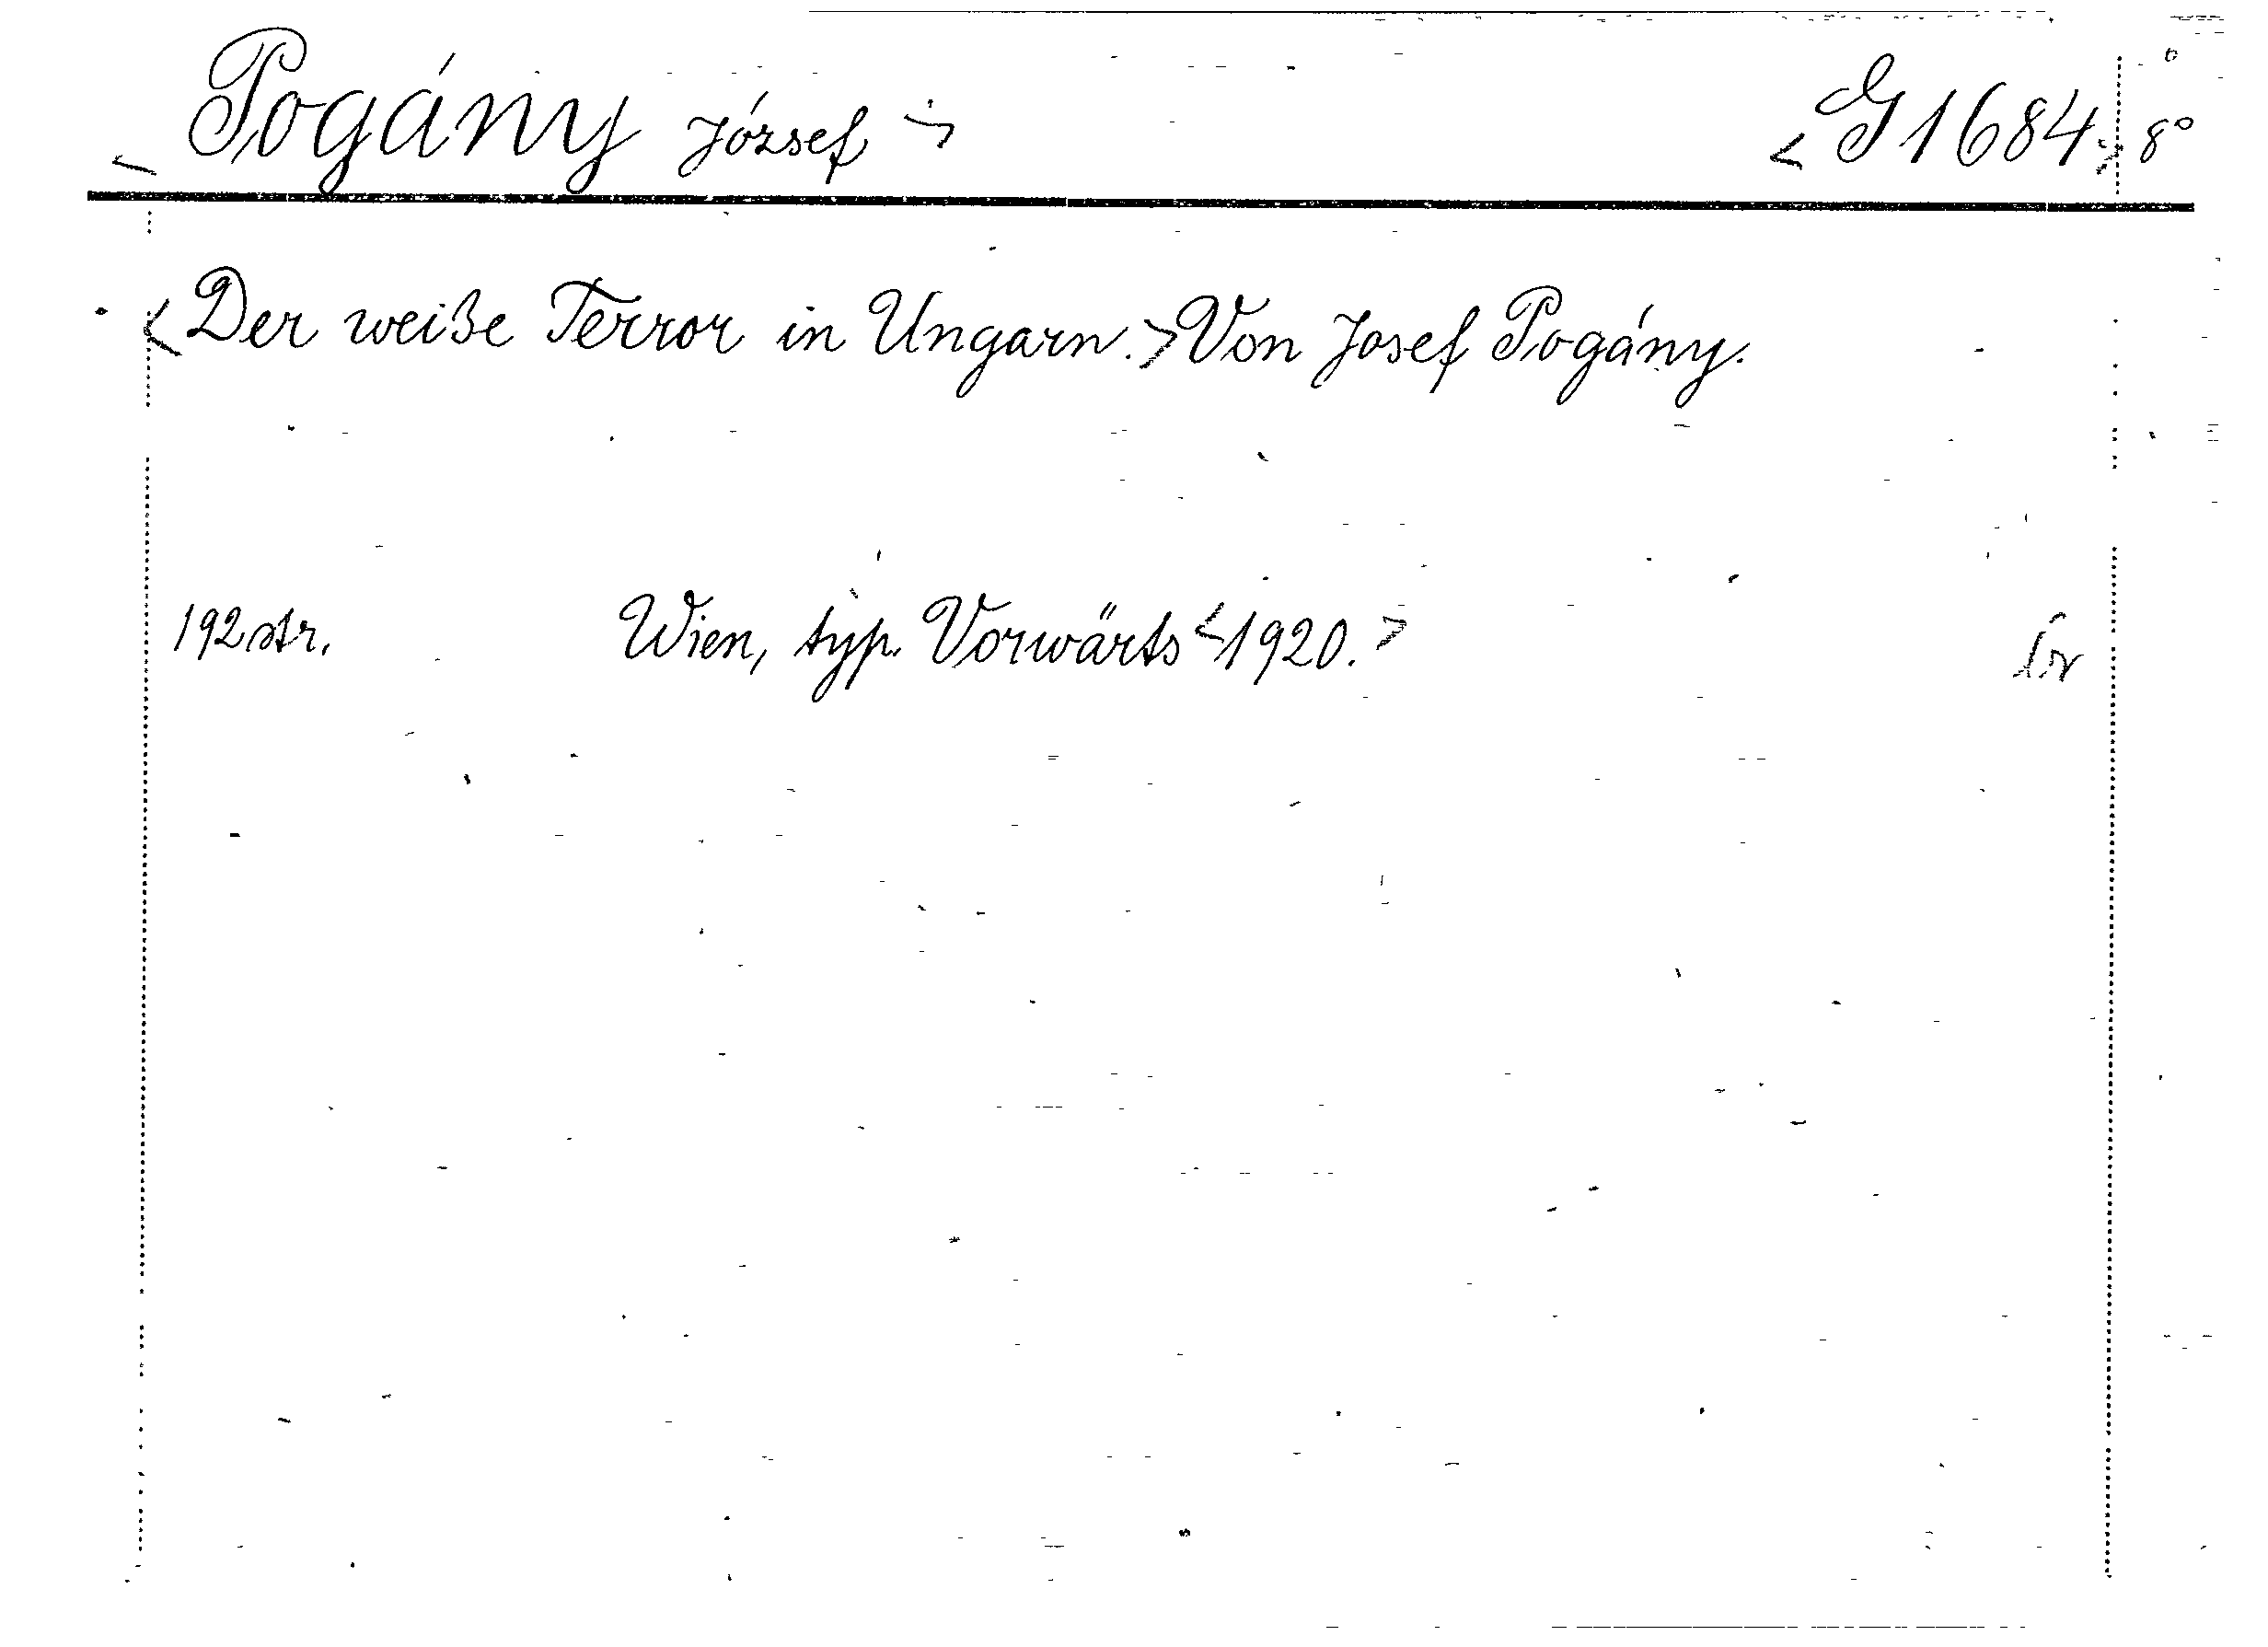 <Pogány József> <G 1684> 8°
<Der weiße Terror in Ungarn.> Von Josef Pogány.
192 str. Wien, typ. Vorwärts <1920.>